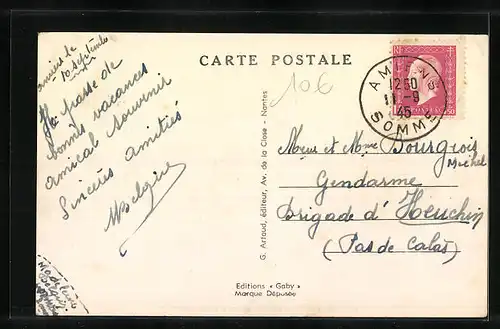 CARTE POSTALE
amiens le
10 septembre
Je passe de
bonnes vacances
amical souvenir
Sincères amitiés
MBelgire
106
RF
AMIENS
1230
11 -9
45
SOMME
G. Artaud, éditeur, Av. de la Close - Nantes
Mr et Mme Bourgeois
Michel
Gendarme
brigade d' Heuchin
(Pas de Calais)
Editions « Gaby »
Marque Déposée